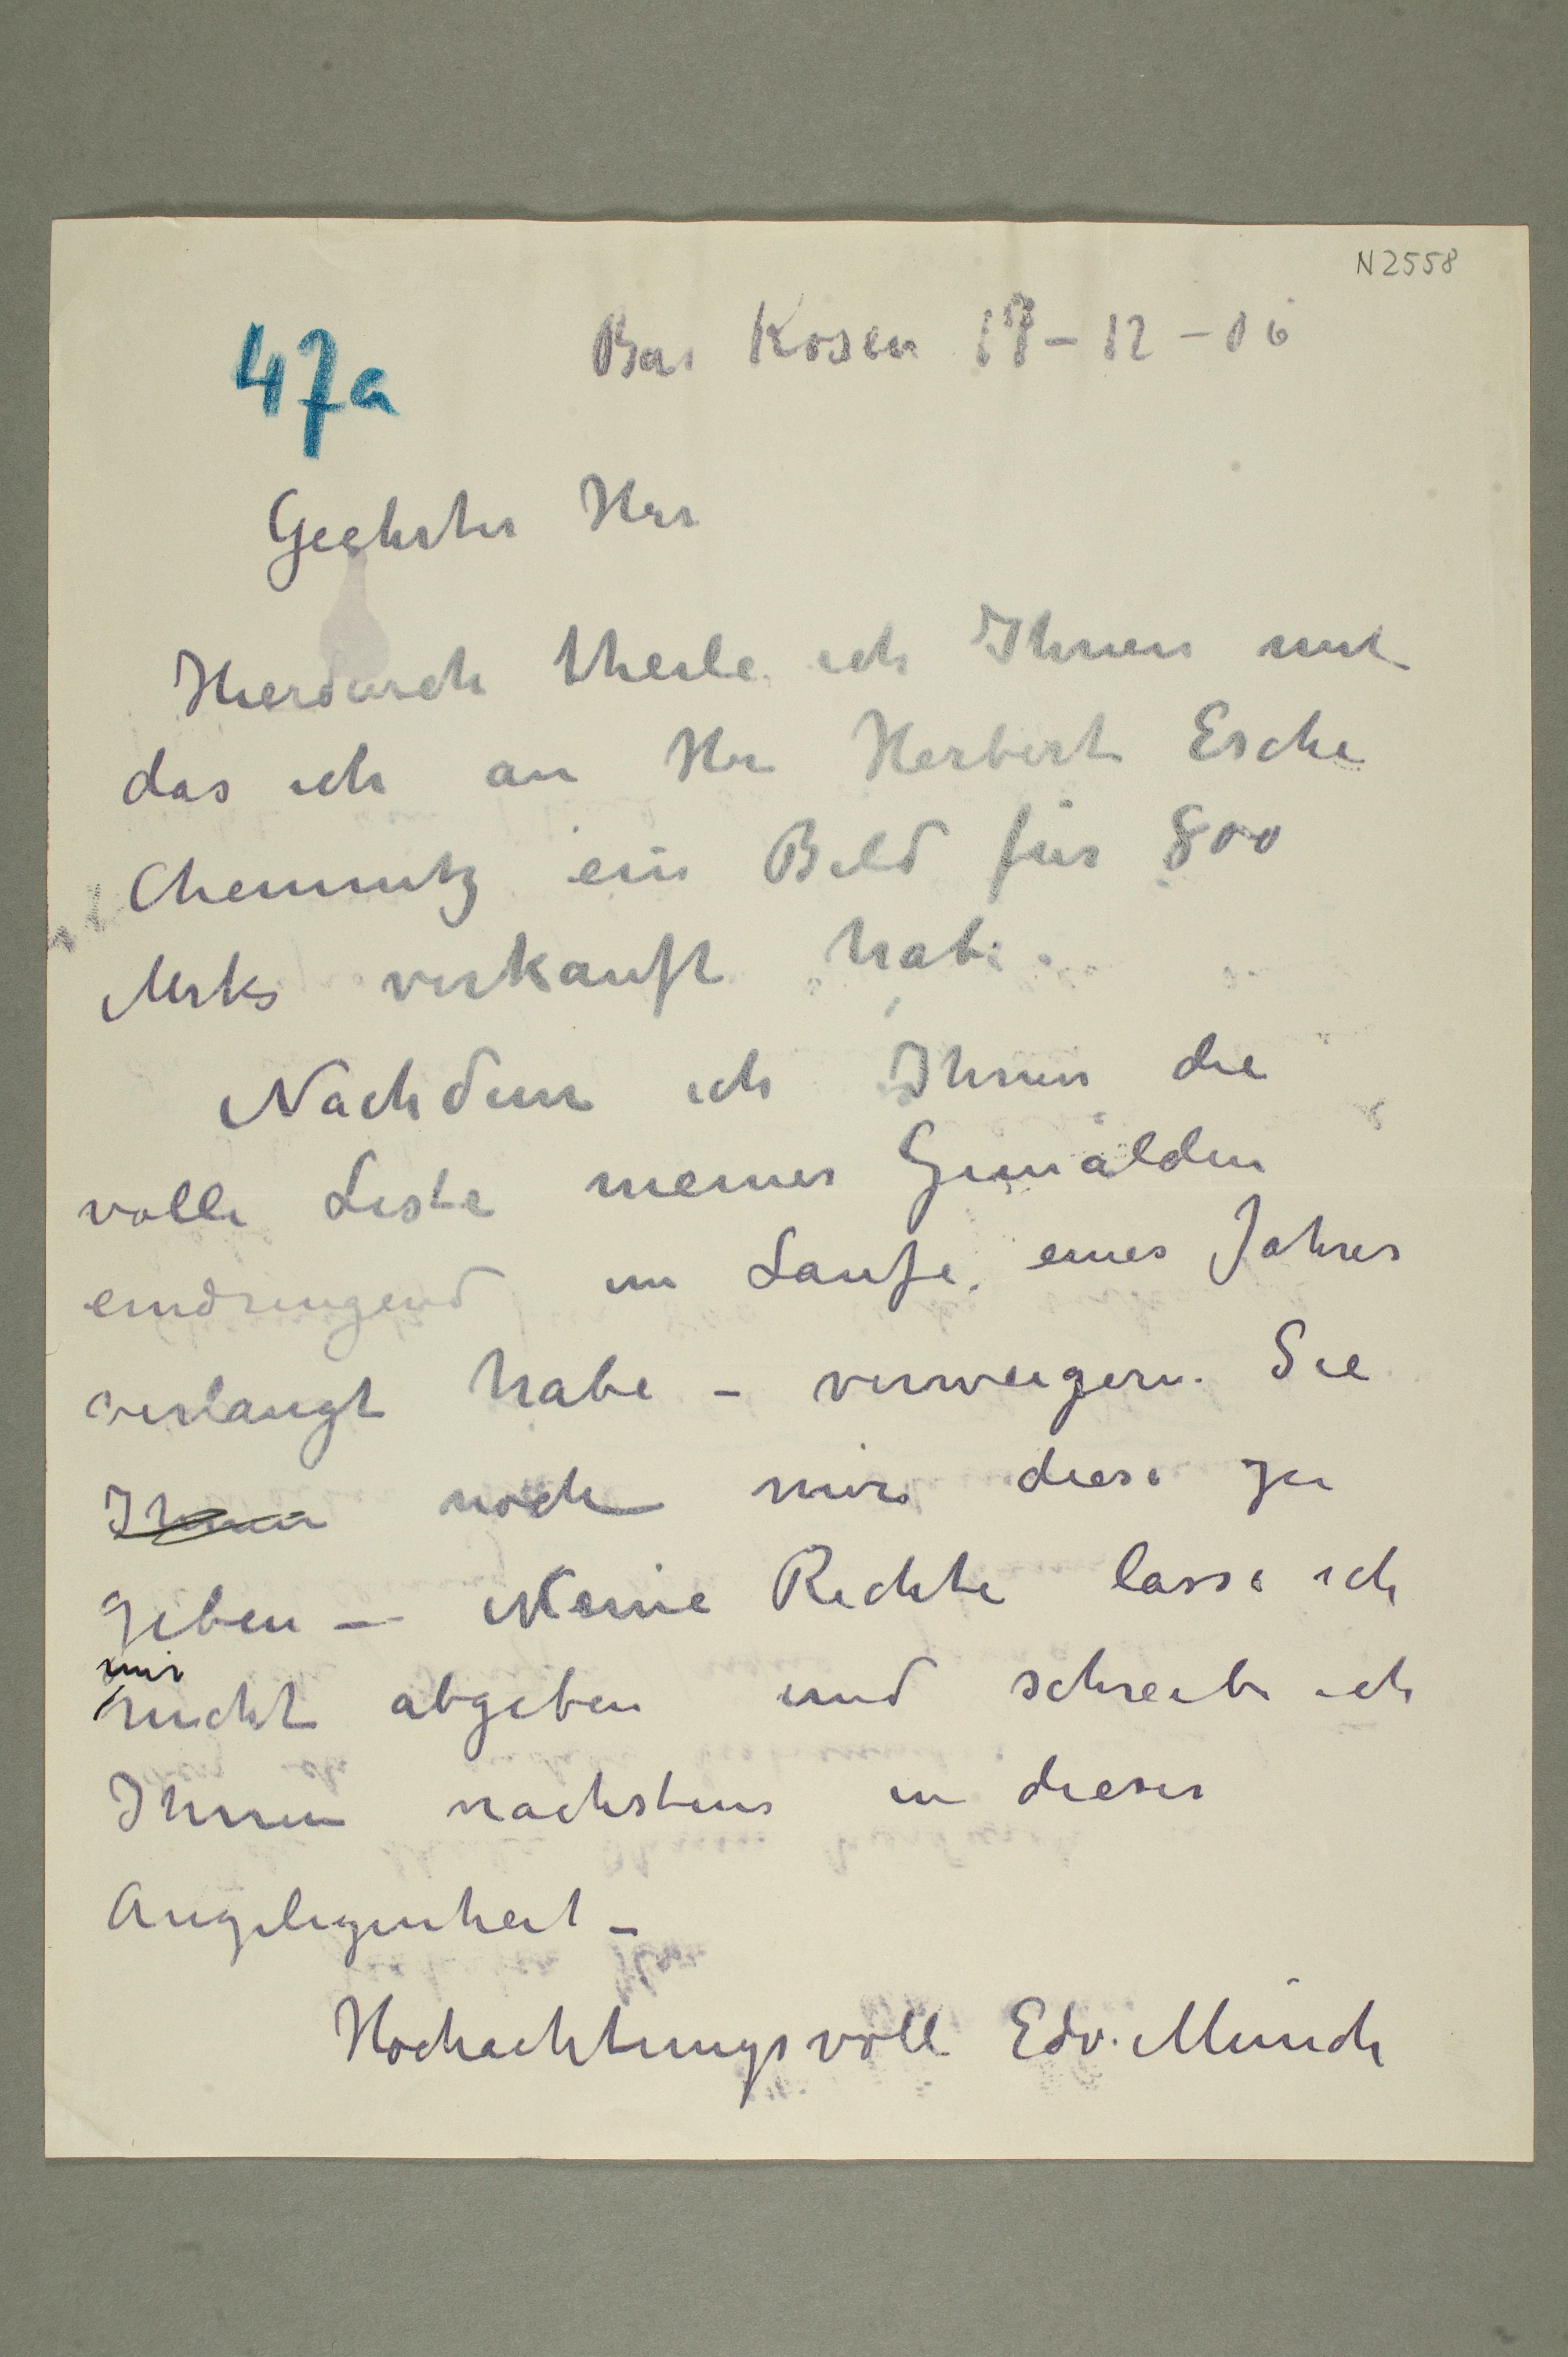 N 2558
47a
Bas Kosen 18-12-06
Geehrter Herr
Hierdurch theile ich Ihnen mit
das ich an Hrn Herbert Esche
Chemnitz ein Bild für 800
Mrks verkauft habe.
Nachdem ich Ihnen die
volle Liste meiner Gemälden
eindringend im Laufe eines Jahres
verlangt habe – verweigern Sie
Ihnen noch mir diese zu
geben – Meine Rechte lasse ich
mir
nicht abgeben und schreibe ich
Ihnen nachstens in dieser
Angelegenheit –
Hochachtungsvoll Edv. Munch